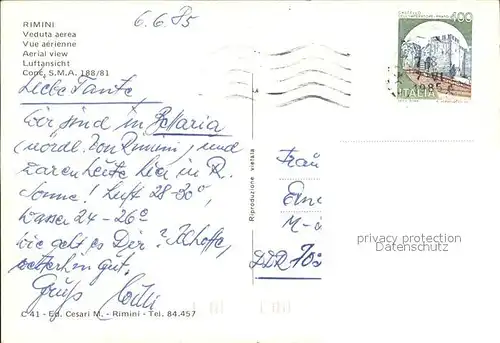 RIMINI
Veduta aerea
Vue aérienne
Aerial view
Luftansicht
Conc. S.M.A. 188/81
6.6.85
400
ITALIA
1985
Liebe Tante
Wir sind in Bellaria
(nördl. von Rimini) und
waren heute hier in R.
Sonne! Luft 28-30°,
Wasser 24-26°
Wie geht es Dir? Ich hoffe,
weiterhin gut.
Gruß
Riproduzione vietata
Frau
DDR 70
privacy protection
Datenschutz
C 41 - Ed. Cesari M. - Rimini - Tel. 84.457